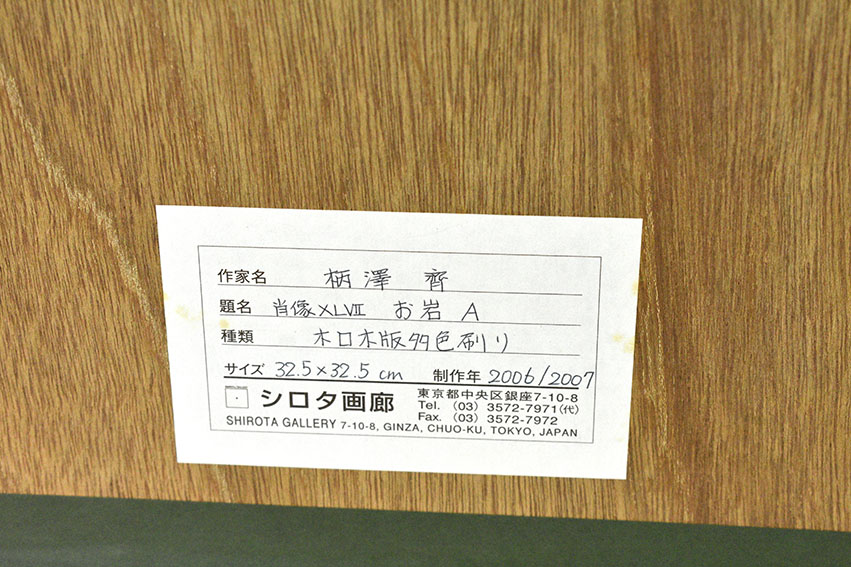 作家名 柄澤 齊
題名 肖像XLVII お岩 A
種類 木口木版多色刷り
サイズ 32.5×32.5cm 制作年 2006/2007
シロタ画廊
東京都中央区銀座7-10-8
Tel. (03) 3572-7971(代)
Fax. (03) 3572-7972
SHIROTA GALLERY 7-10-8, GINZA, CHUO-KU, TOKYO, JAPAN